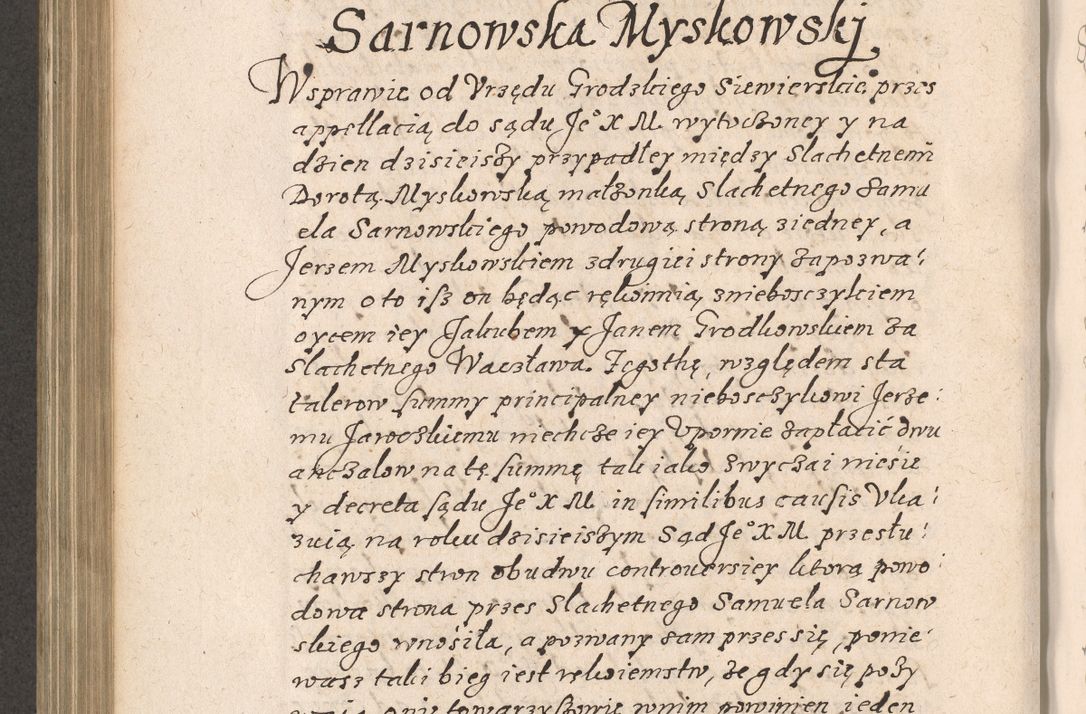 Sarnowska Myskowskj
Wsprawie od Vrzędu Grodzkiego Siewierskie° przes
appellacią do sądu Je° X M. wytoczoney y na
dzien dzisieiszy przypadłey między Slachetnem
Dorotą Myskowską małżonką Slachetnego Samu
ela Sarnowskiego powodową stroną ziedney, a
Jerzem Myskowskiem zdrugiei strony zapozwa:
nym o to isz on będąc rękoimią zniebosczylciem
oycem iey Jakubem y Janem Grodkowskiem za
Slachetnego Waczława Zegothę, względem sta
talerow summy principalney nieboszczykowi Jerze:
mu Jaroczkiemu niechcze iey Vpornie zapłacić dwu
anczałow na tę summę tak iako zwyczai niesie
y decreta sądu Je° X M. in similibus causis Vka:
zuią, na roku dzisieiszym Sąd Je° X M. przesłu:
chawszy stron obudwu controuersiey ktorą powo:
dowa strona przes Slachetnego Samuela Sarnow
skiego wnosiła, a pozwany sam przes się, ponie:
wasz taki bieg iest rękoiemstw, że gdy się poży
towarzyszowie wnim powinien ieden